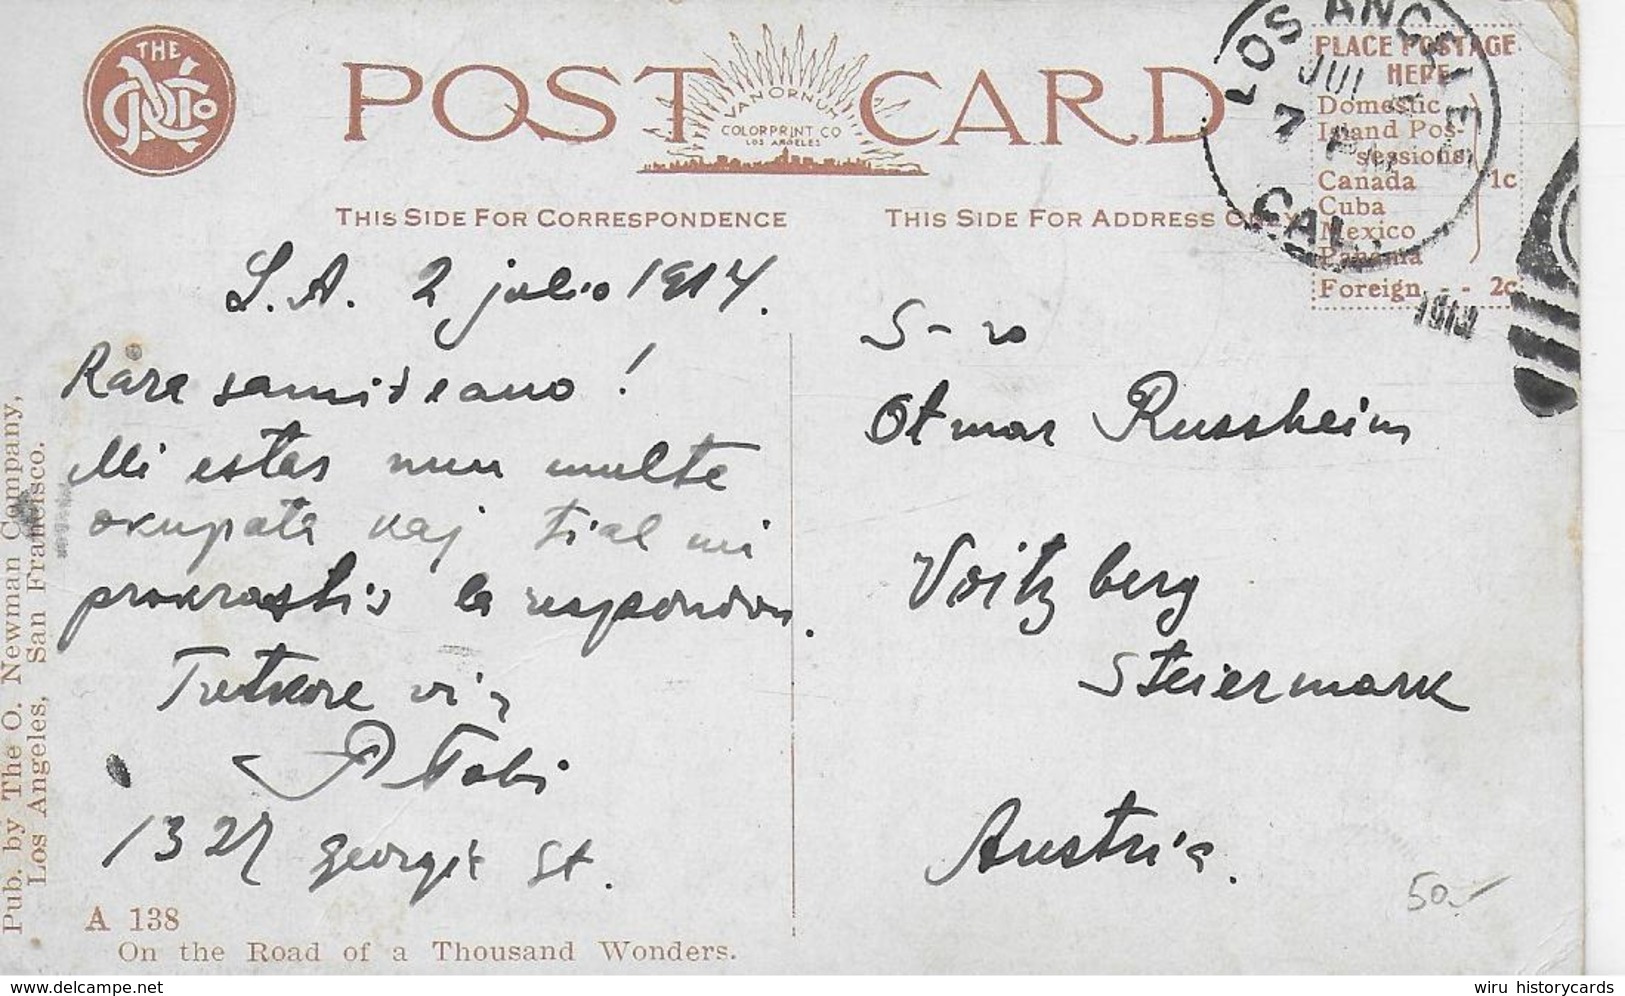 THE
POST CARD
VAN ORNUM
COLORPRINT CO
LOS ANGELES
THIS SIDE FOR CORRESPONDENCE
THIS SIDE FOR ADDRESS ONLY
PLACE POSTAGE
HERE
Domestic
Island Pos-
sessions
Canada
Cuba
Mexico
Panama
1c
Foreign - - 2c
LOS ANGELES
JUL
7 PM
CAL.
L.A. 2 julio 1914.
Kara samideano!
Mi estas nun multe
okupata kaj tial mi
prokrastis la respondon.
Tutkore via
P Tobi
1327 Georgia St.
S-ro
Otmar Russheim
Voitzberg
Steiermark
Austria.
50.-
Pub. by The O. Newman Company,
Los Angeles, San Francisco.
A 138
On the Road of a Thousand Wonders.
www.delcampe.net
wiru historycards